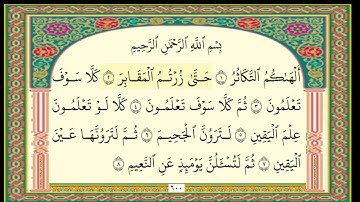 بِسْمِ اللَّهِ الرَّحْمَٰنِ الرَّحِيمِ
أَلْهَاكُمُ التَّكَاثُرُ ١ حَتَّىٰ زُرْتُمُ الْمَقَابِرَ ٢ كَلَّا سَوْفَ
تَعْلَمُونَ ٣ ثُمَّ كَلَّا سَوْفَ تَعْلَمُونَ ٤ كَلَّا لَوْ تَعْلَمُونَ
عِلْمَ الْيَقِينِ ٥ لَتَرَوُنَّ الْجَحِيمَ ٦ ثُمَّ لَتَرَوُنَّهَا عَيْنَ
الْيَقِينِ ٧ ثُمَّ لَتُسْأَلُنَّ يَوْمَئِذٍ عَنِ النَّعِيمِ ٨
٦٠٠